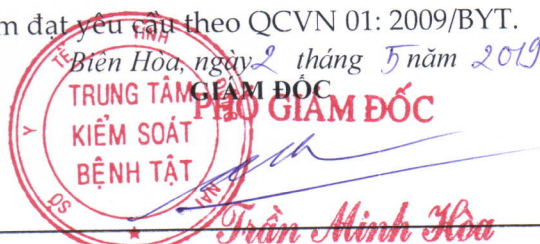 m đạt yêu cầu theo QCVN 01: 2009/BYT.
Biên Hòa, ngày 2 tháng 5 năm 2019
GIÁM ĐỐC
PHÓ GIÁM ĐỐC
TRUNG TÂM
KIỂM SOÁT
BỆNH TẬT
SỞ Y TẾ TỈNH NAI
Trần Minh Hòa